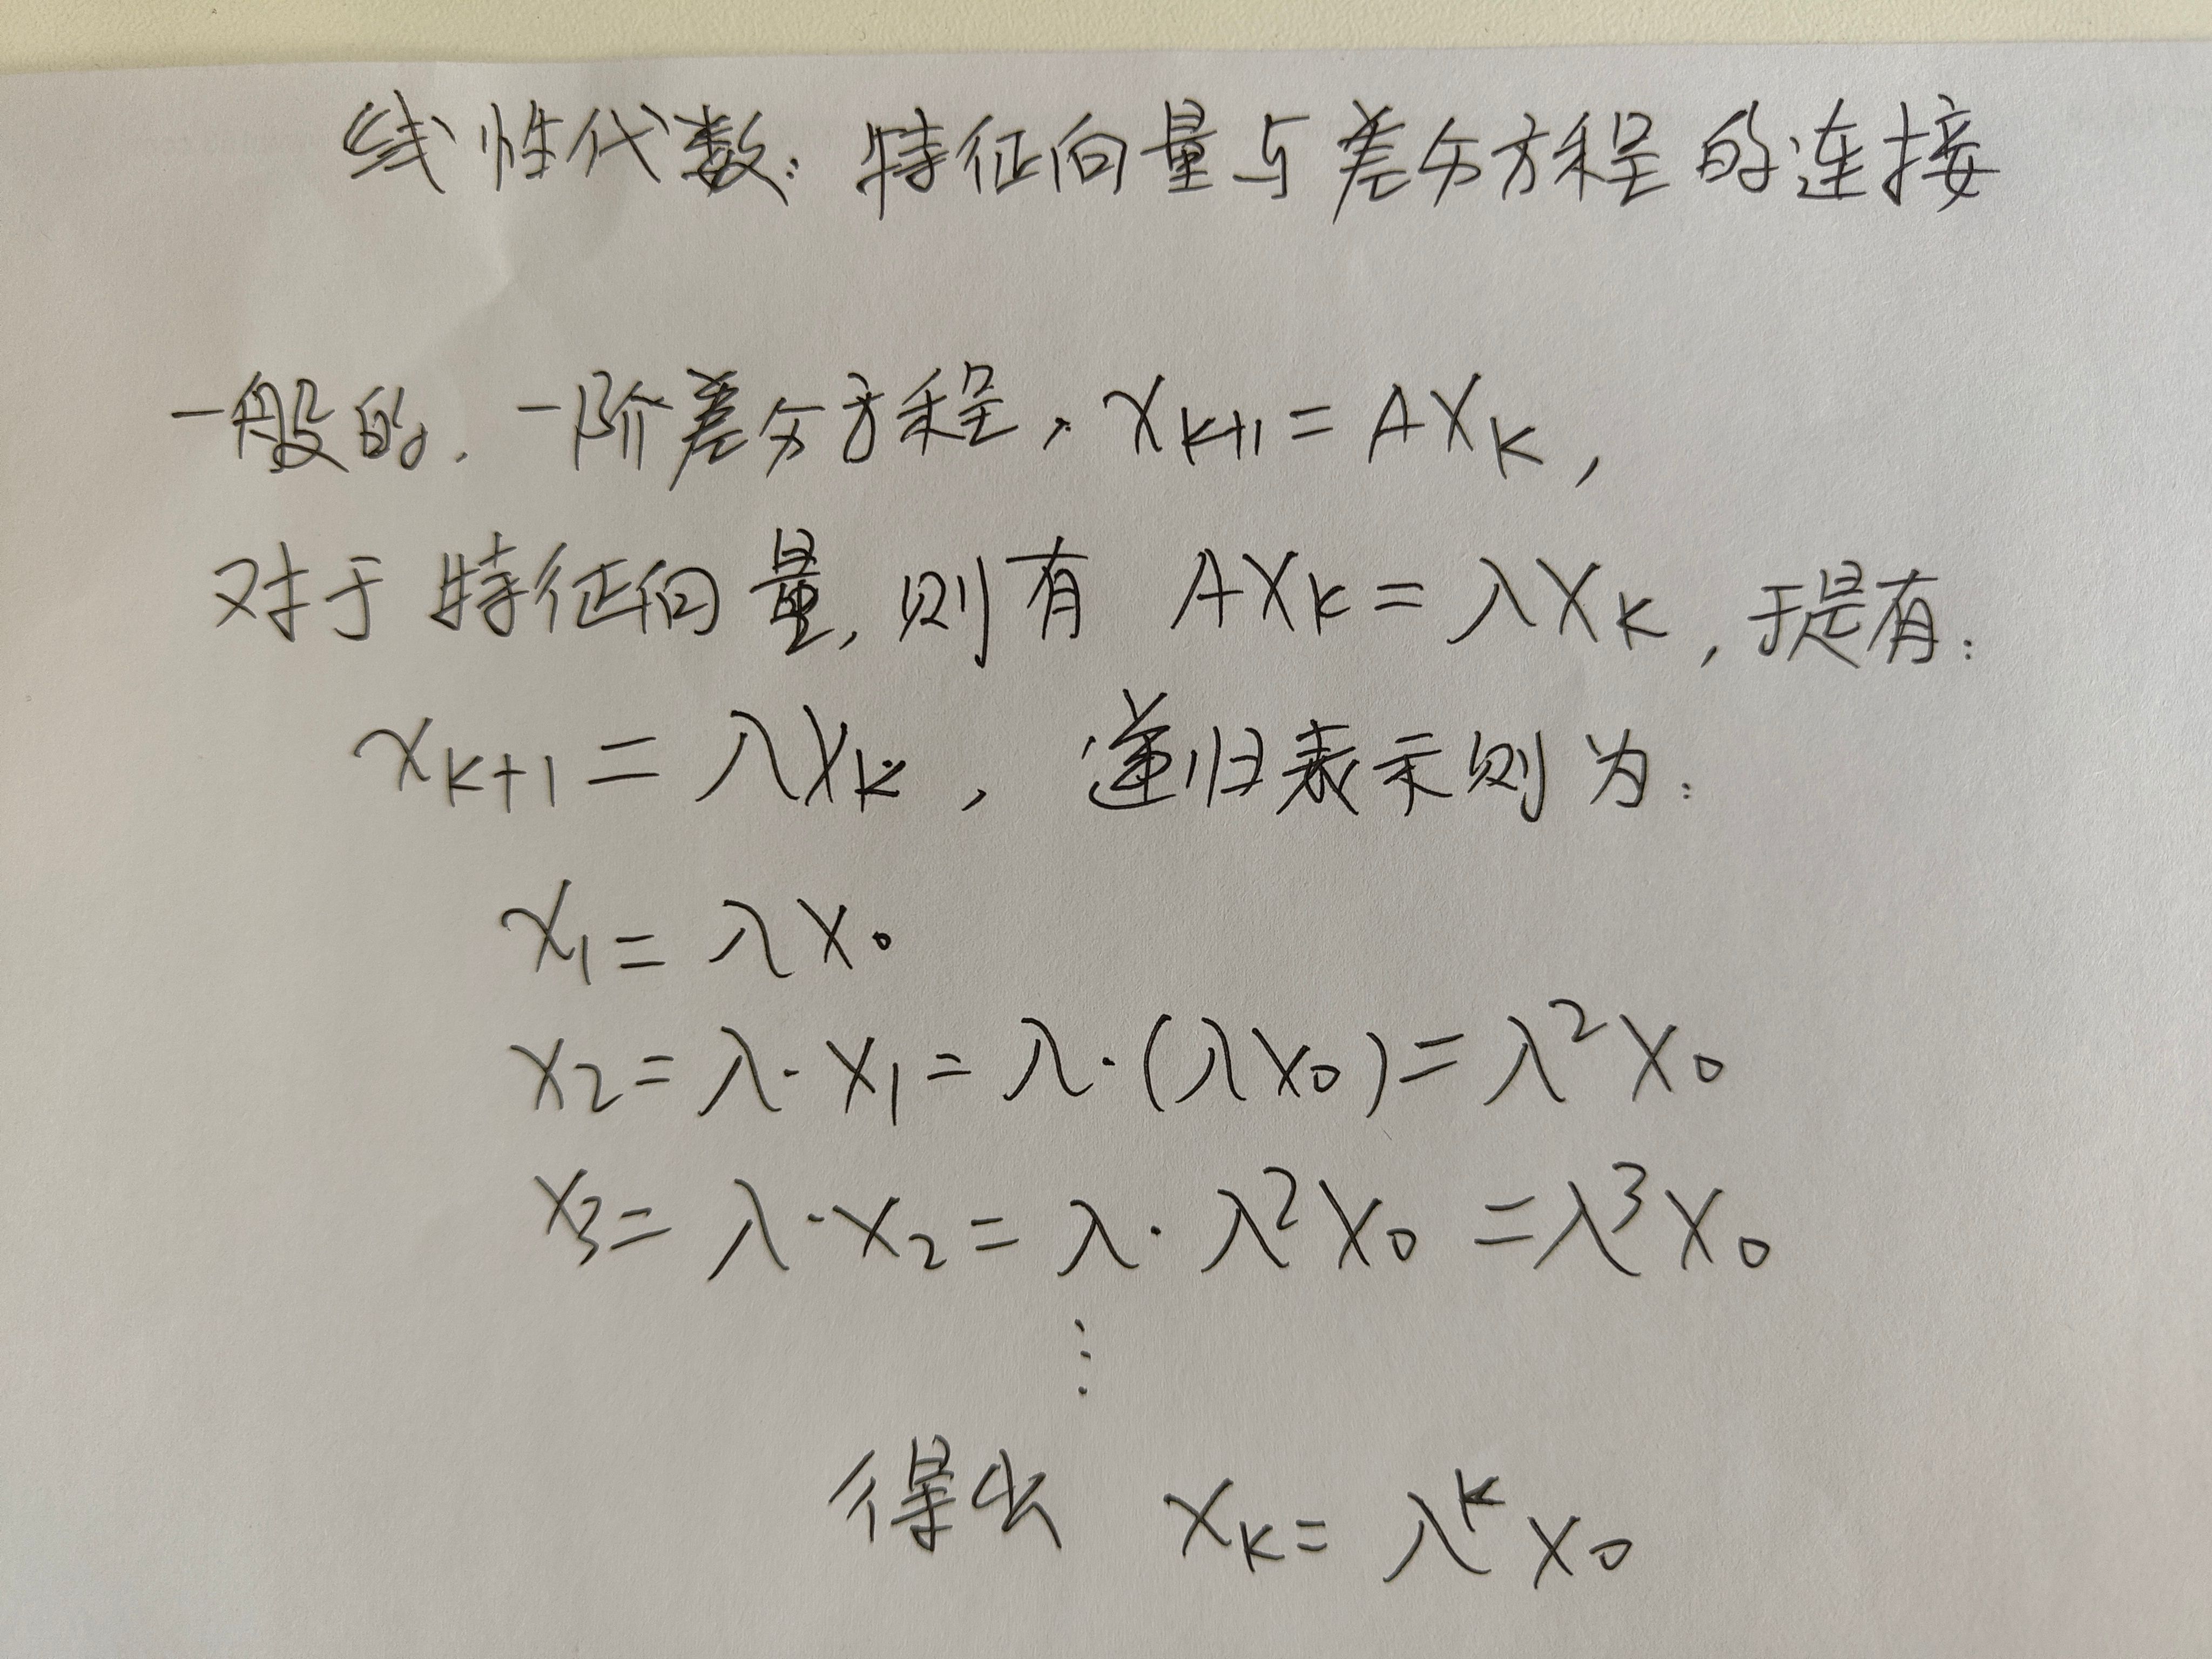 线性代数：特征向量与差分方程的连接
一般的，一阶差分方程，x_{k+1} = AX_k，
对于特征向量，则有 AX_k = λX_k，于是有：
x_{k+1} = λX_k，递归表示则为：
x_1 = λX_0
x_2 = λ·x_1 = λ·(λX_0) = λ^2 X_0
x_3 = λ·x_2 = λ·λ^2 X_0 = λ^3 X_0
⋮
得出 x_k = λ^k x_0